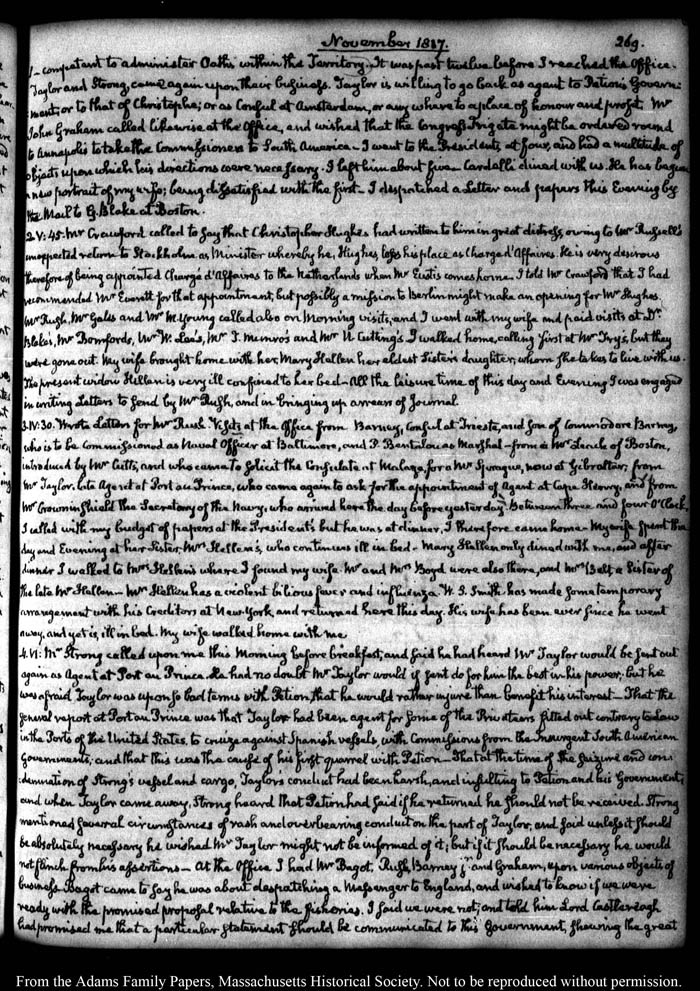 November 1817.
269.
1— competent to administer Oaths within the Territory. It was past twelve before I reached the Office.
Taylor and Strong, came again upon their business. Taylor is willing to go back as agent to Petion's Govern-
ment, or to that of Christophe; or as Consul at Amsterdam, or any where to a place of honour and profit. Mr
John Graham called likewise at the Office, and wished that the Congress Frigate might be ordered round
to Annapolis to take the Commissioners to South America— I went to the President's at four, and had a multitude of
objects upon which his directions were necessary. I left him about five— Cardelli dined with us. He has begun
a new portrait of my wife; being dissatisfied with the first— I despatched a Letter and papers this Evening by
the Mail to G. Blake at Boston.
2. V: 45. Mr Crawford called to say that Christopher Hughes had written to him in great distress, owing to Mr Russell's
unexpected return to Stockholm as Minister whereby he, Hughes, loses his place as Chargé d'Affaires. He is very desirous
therefore of being appointed Chargé d'Affaires to the Netherlands when Mr Eustis comes home. I told Mr Crawford that I had
recommended Mr Everett for that appointment, but possibly a mission to Berlin might make an opening for Mr Hughes.
Mr Rush, Mr Gales and Mr M. Young called also on Morning visits, and I went with my wife and paid visits at Dr
Blake's, Mr Bomfords, Mr W. Lee's, Mr T. Munro's and Mr Cutting's. I walked home, calling first at Mr Frys, but they
were gone out. My wife brought home with her, Mary Hellen her eldest Sister's daughter, whom she takes to live with us.
The present widow Hellen is very ill confined to her bed— All the leisure time of this day and Evening I was engaged
in writing Letters to send by Mr Rush, and in bringing up arrears of Journal.
3. IV: 30. Wrote Letters for Mr Rush. Visits at the Office from Barney, Consul at Trieste, and Son of Commodore Barney,
who is to be commissioned as Naval Officer at Baltimore, and P. Bentalou as Marshal— from a Mr of Boston,
introduced by Mr Cutts, and who came to solicit the Consulate at Malaga, for a Mr Sprague, now at Gibraltar; from
Mr Taylor, late Agent at Port au Prince, who came again to ask for the appointment of Agent at Cape Henry, and from
Mr Crowninshield the Secretary of the Navy, who arrived here the day before yesterday. Between three and four O'Clock,
I called with my budget of papers at the President's but he was at dinner, I therefore came home— My wife spent the
day and Evening at her Sister, Mrs Hellen's, who continues ill in bed— Mary Hellen only dined with me, and after
dinner I walked to Mrs Hellen's where I found my wife. Mr and Mrs Boyd were also there, and Mrs Belt, a Sister of
the late Mr Hellen— Mrs Hellen has a violent bilious fever and influenza. W. S. Smith has made some temporary
arrangement with his Creditors at New-York, and returned here this day. His wife has been ever since he went
away, and yet is, ill in bed. My wife walked home with me.
4. VI: Mr Strong called upon me this Morning before breakfast, and said he had heard Mr Taylor would be sent out
again as Agent at Port au Prince. He had no doubt Mr Taylor would if sent do for him the best in his power, but he
was afraid Taylor was upon so bad terms with Petion, that he would rather injure than benefit his interest— That the
general report at Port au Prince was that Taylor had been agent for some of the Privateers fitted out contrary to Law
in the Ports of the United States, to cruize against Spanish vessels, with Commissions from the Insurgent South American
Governments; and that this was the cause of his first quarrel with Petion— That at the time of the seizure and con-
demnation of Strong's vessel and cargo, Taylor's conduct had been harsh, and insulting to Petion and his Government;
and when Taylor came away, Strong heard that Petion had said if he returned he should not be received. Strong
mentioned several circumstances of rash and overbearing conduct on the part of Taylor, and said unless it should
be absolutely necessary he wished Mr Taylor might not be informed of it; but if it should be necessary he would
not flinch from his assertions— At the Office I had Mr Bagot, Rush, Barney jr. and Graham, upon various objects of
business. Bagot came to say he was about despatching a Messenger to England, and wished to know if we were
ready with the promised proposal relative to the fisheries. I said we were not; and told him Lord Castlereagh
had promised me that a particular statement should be communicated to this Government, shewing the great
From the Adams Family Papers, Massachusetts Historical Society. Not to be reproduced without permission.